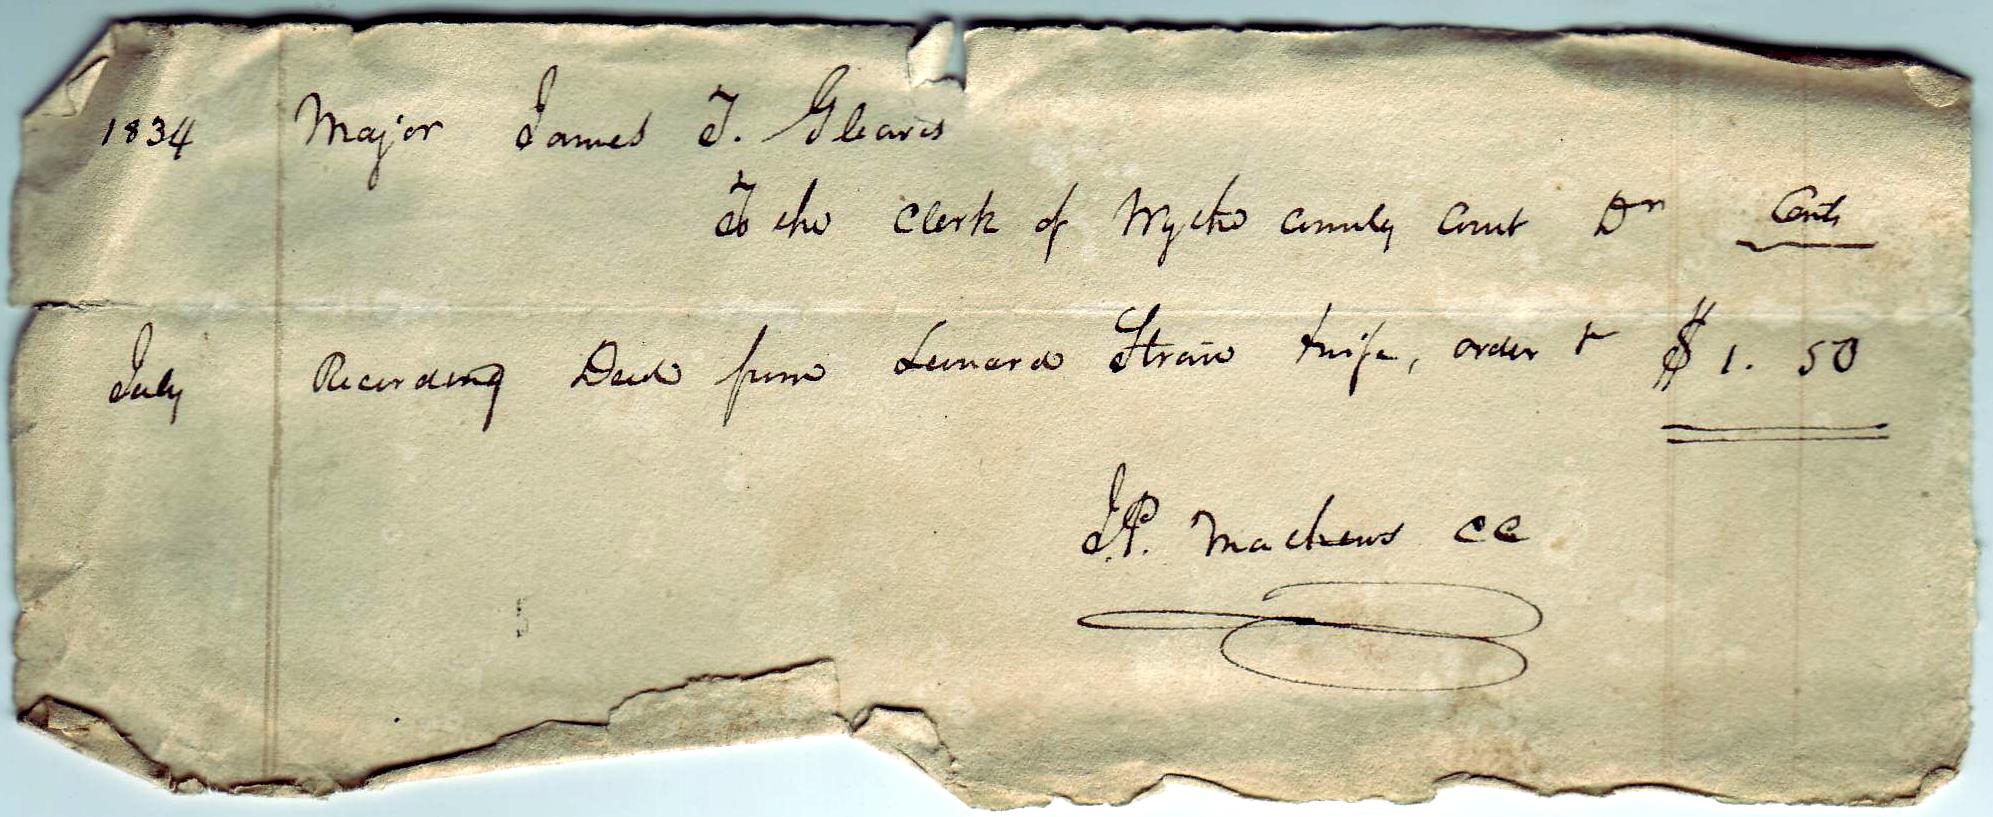 1834 Major James T. Gleaves
To the Clerk of Wythe County Court Dr Cents
July Recording Deed from Leonard Straw & wife, order & $ 1. 50
J.P. Mathews CC